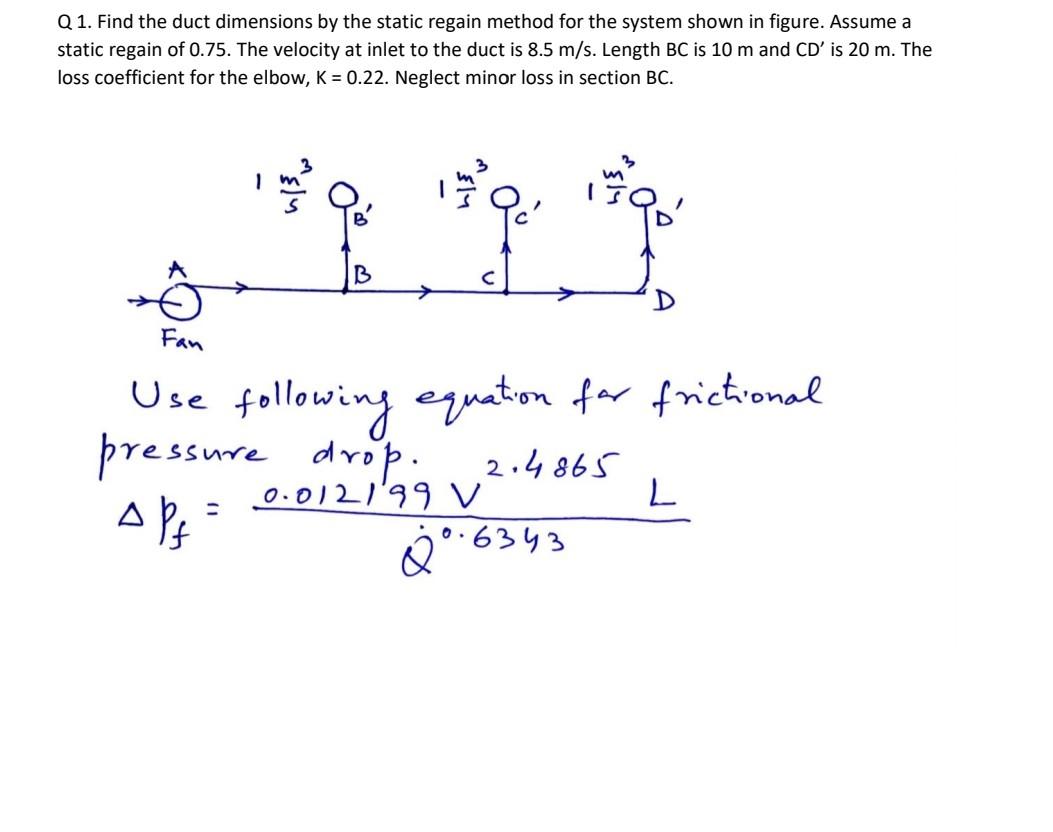 Q 1. Find the duct dimensions by the static regain method for the system shown in figure. Assume a
static regain of 0.75. The velocity at inlet to the duct is 8.5 m/s. Length BC is 10 m and CD′ is 20 m. The
loss coefficient for the elbow, K = 0.22. Neglect minor loss in section BC.
1 m³/s 1 m³/s 1 m³/s
B' C' D'
A B C D
Fan
Use following equation for frictional
pressure drop.
Δ P_f = 0.012199 V^2.4865 L / Q̇^0.6343